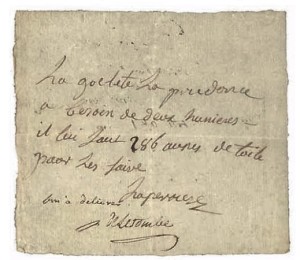 La goelete La prudence
a besoin de deux huniers
il lui faut 286 aunes de toile
pour les faire
Laperriere
bon a delivrer